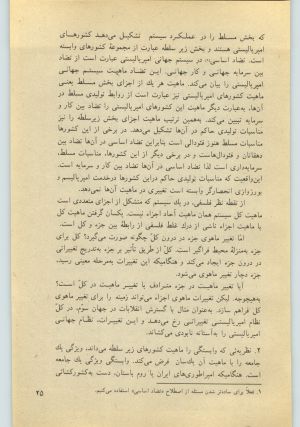 که بخش مسلط را در عملکرد سیستم تشکیل می‌دهند کشورهای
امپریالیستی هستند و بخش زیر سلطه عبارت از مجموعهٔ کشورهای وابسته
است. تضاد اساسی۱، در سیستم جهانی امپریالیستی عبارت است از تضاد
بین سرمایه جهانی و کار جهانی. این تضاد ماهیت سیستم جهانی
امپریالیستی را بیان می‌کند. ماهیت هر یک از اجزای بخش زیر سلطه از
ماهیت کشورهای امپریالیستی نیز عبارت است از روابط تولیدی مسلط در
آن‌ها، به‌عبارت دیگر ماهیت این کشورهای امپریالیستی را تضاد بین کار و
سرمایه تبیین می‌کند. به‌همین ترتیب ماهیت اجزای بخش زیرسلطه را نیز
مناسبات تولیدی حاکم در آن‌ها تشکیل می‌دهد. در برخی از این کشورها
مناسبات مسلط هنوز فئودالی است بنابراین تضاد اساسی در آن‌ها تضاد بین
دهقانان و فئودال‌هاست و در برخی دیگر از این کشورها، مناسبات مسلط،
سرمایه‌داری است لذا تضاد اساسی در آن‌ها تضاد بین کار و سرمایه است.
این‌واقعیت که مناسبات تولیدی حاکم دراین کشورها درخدمت امپریالیسم و
بورژوازی انحصارگر وابسته است تغییری در ماهیت آن‌ها نمی‌دهد.
از نقطه نظر فلسفی، در یك سیستم که متشکل از اجزای متعددی است
ماهیت کل سیستم همان ماهیت آحاد اجزاء نیست. یکسان گرفتن ماهیت کل
با ماهیت اجزاء ناشی از درك غلط فلسفی از رابطهٔ بین جزء و کل است.
امّا تغییر ماهوی جزء در درون کلّ چگونه صورت می‌گیرد؟ کل برای
جزء به‌منزلهٔ محیط فراگیر است. کل از طریق تأثیر بر جزء به‌تدریج تغییراتی
در درون جزء ایجاد می‌کند و هنگامیکه این تغییرات به‌مرحله معینی رسید،
جزء دچار تغییر ماهوی می‌شود.
آیا تغییر ماهیت در جزء مترادف با تغییر ماهیت در کل است؟
به‌هیچوجه. لیکن تغییرات ماهوی اجزاء می‌تواند زمینه را برای تغییر ماهوی
کل فراهم سازد. به‌عنوان مثال با گسترش انقلابات در جهان سوم، در کلّ
نظام امپریالیستی تغییراتی رخ می‌دهد و این تغییرات، نظام جهانی
امپریالیستی را به‌آستانه نابودی می‌کشاند.
۲. نظریه‌ئی که وابستگی را ماهیت کشورهای زیر سلطه می‌داند، ویژگی یك
جامعه را با ماهیت آن یک‌سان فرض می‌کند. وابستگی ویژگی یك جامعه
است. هنگامیکه امپراطوری‌های ایران یا روم باستان، دست به‌کشورگشائی
۱. فعلاً برای ساده‌تر شدن مسئله از اصطلاح «تضاد اساسی» استفاده می‌کنیم.
۲۵